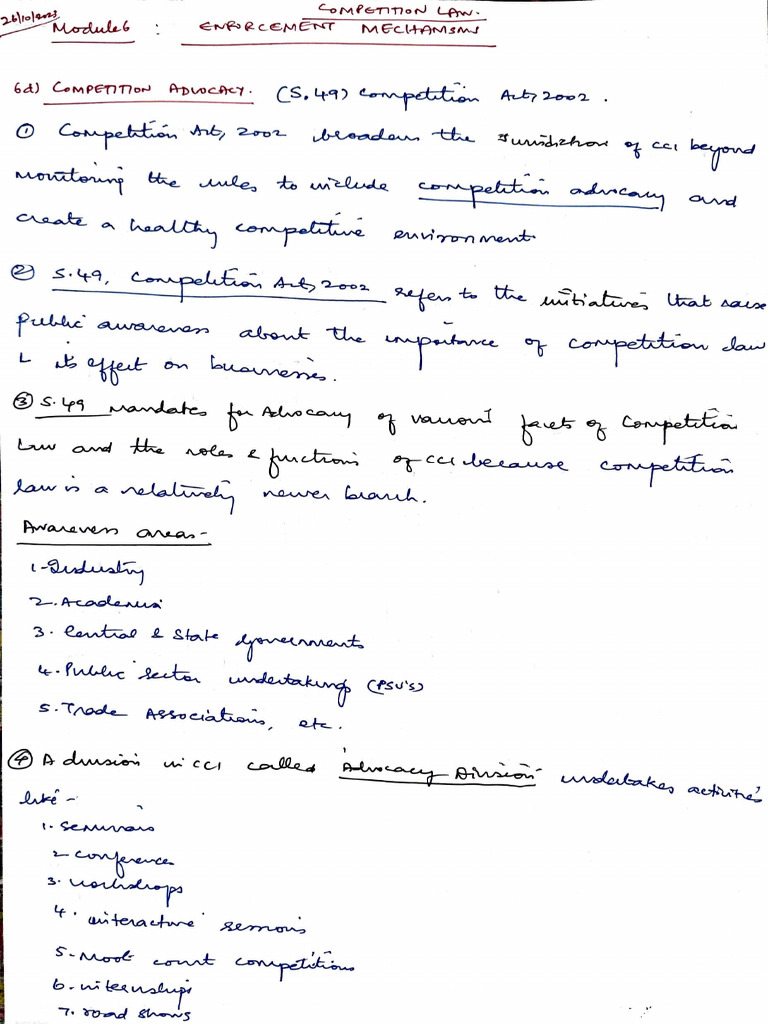 26/10/2023
COMPETITION LAW.
Module 6 : ENFORCEMENT MECHANISMS
6d) COMPETITION ADVOCACY. (S.49) Competition Act, 2002.
① Competition Act, 2002 broadens the Jurisdiction of CCI beyond
monitoring the rules to include competition advocacy and
create a healthy competitive environment.
② S.49, Competition Act, 2002 refers to the initiatives that raise
public awareness about the importance of competition law
& its effect on businesses.
③ S.49 Mandates for Advocacy of various facets of Competition
Law and the roles & functions of CCI because competition
law is a relatively newer branch.
Awareness areas-
1-Industry
2. Academia
3. Central & State Governments
4. Public Sector undertakings (PSU's)
5. Trade Associations, etc.
④ A division in CCI called 'Advocacy Division' undertakes activities
like-
1. Seminars
2 conferences
3. workshops
4. interactive sessions
5. Moot court competitions
6. internships
7. road shows